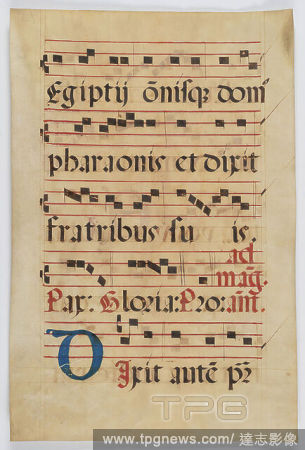 Egiptij õnisq; dom⁹
pharaonis et dixit
fratribus su is.
ad
mag̃.
Pax: Gloria: Pro: ant̃.
Dixit autẽ pr̃
TPG
www.tpgnews.com/達志影像